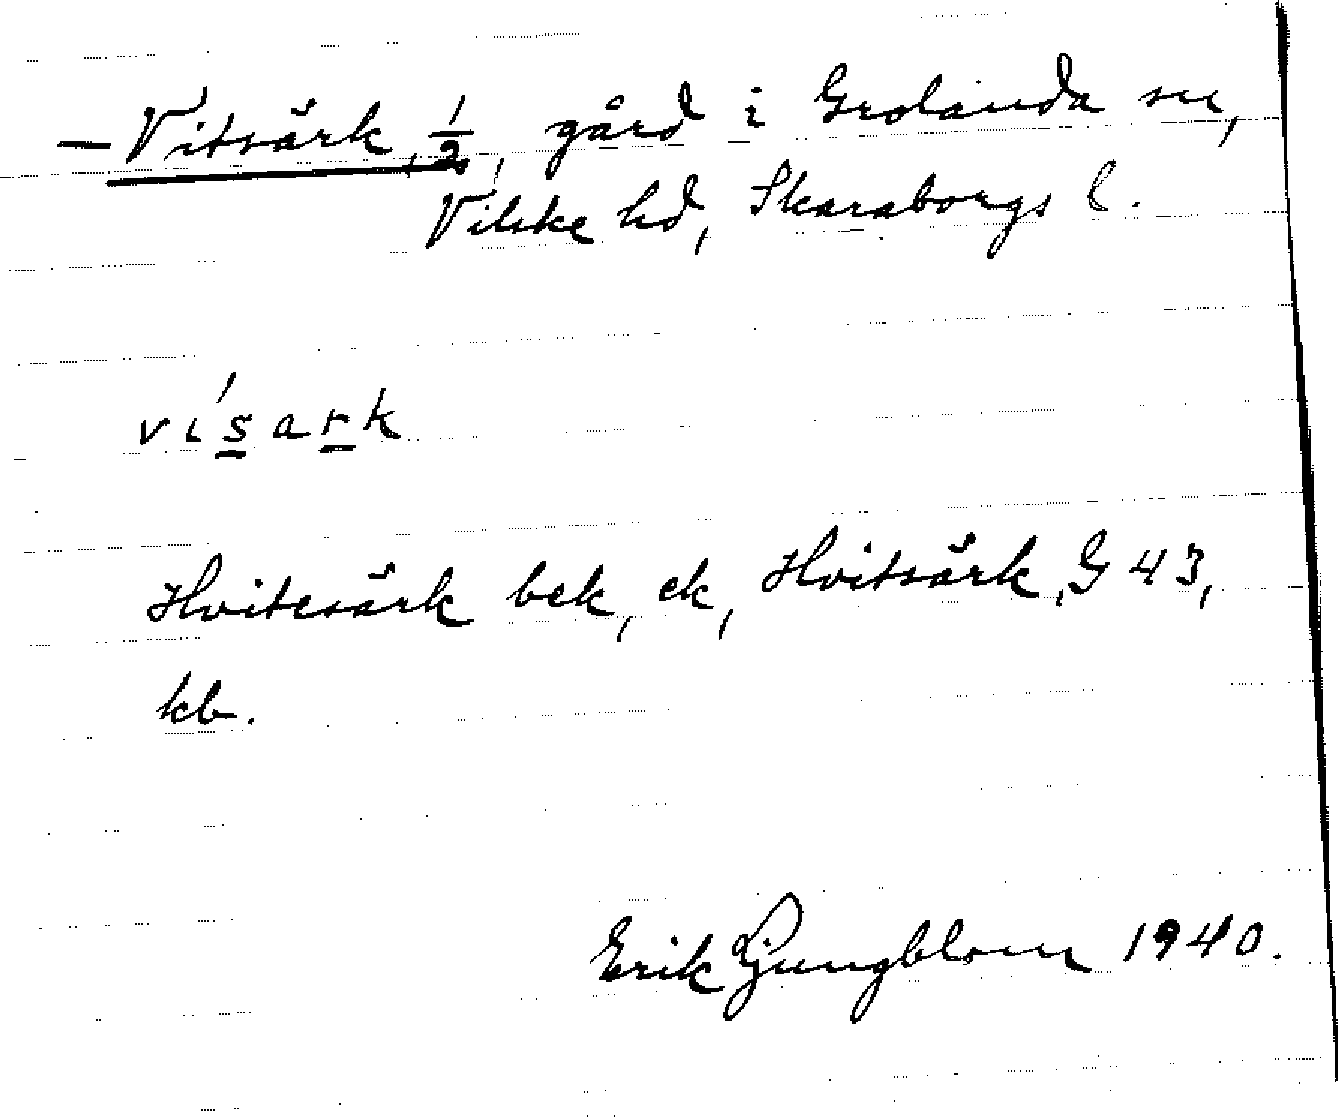 — Vitsärk, 1/2, gård i Grolanda sn,
Vilske hd, Skaraborgs l.
vísark
Hvitesärk bek, ek, Hvitsärk, G 43,
kb.
Erik Ljungblom 1940.